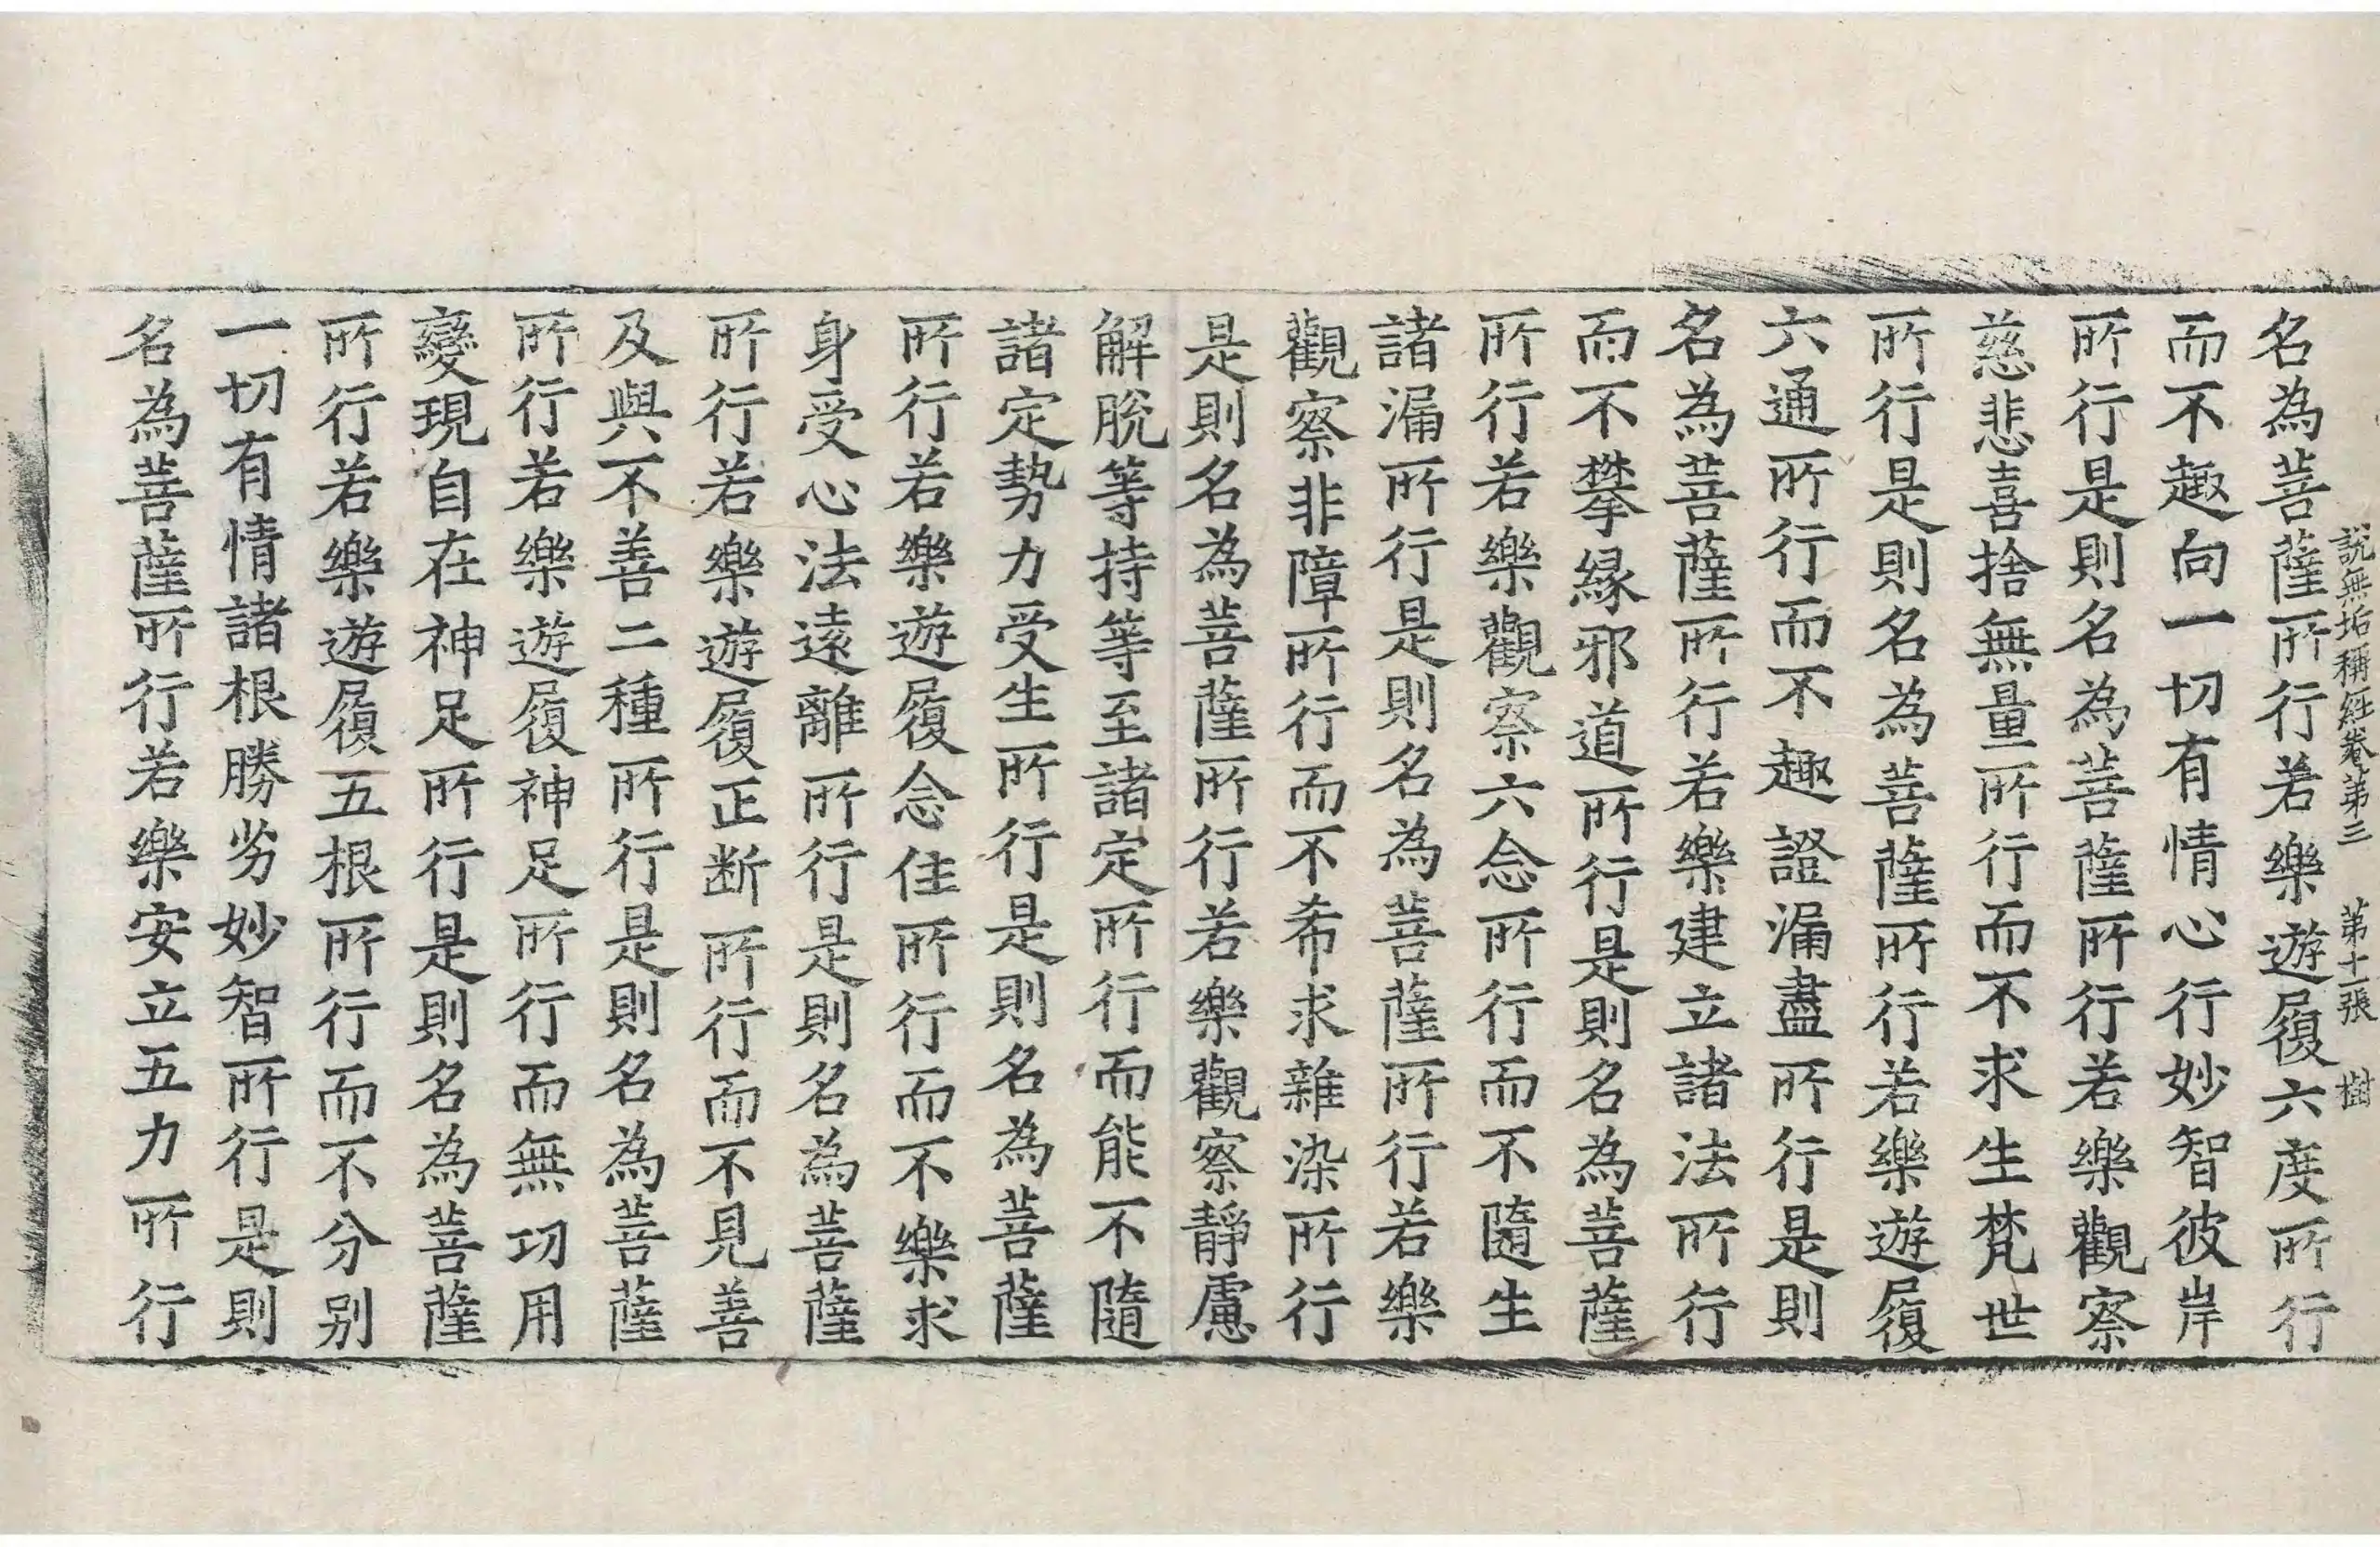 說無垢稱經卷第三 第十一張 樹
名為菩薩所行若樂遊履六度所行
而不趣向一切有情心行妙智彼岸
所行是則名為菩薩所行若樂觀察
慈悲喜捨無量所行而不求生梵世
所行是則名為菩薩所行若樂遊履
六通所行而不趣證漏盡所行是則
名為菩薩所行若樂建立諸法所行
而不攀緣邪道所行是則名為菩薩
所行若樂觀察六念所行而不隨生
諸漏所行是則名為菩薩所行若樂
觀察非障所行而不希求雜染所行
是則名為菩薩所行若樂觀察靜慮
解脫等持等至諸定所行而能不隨
諸定勢力受生所行是則名為菩薩
所行若樂遊履念住所行而不樂求
身受心法遠離所行是則名為菩薩
所行若樂遊履正断所行而不見善
及與不善二種所行是則名為菩薩
所行若樂遊履神足所行而無功用
變現自在神足所行是則名為菩薩
所行若樂遊履五根所行而不分別
一切有情諸根勝劣妙智所行是則
名為菩薩所行若樂安立五力所行